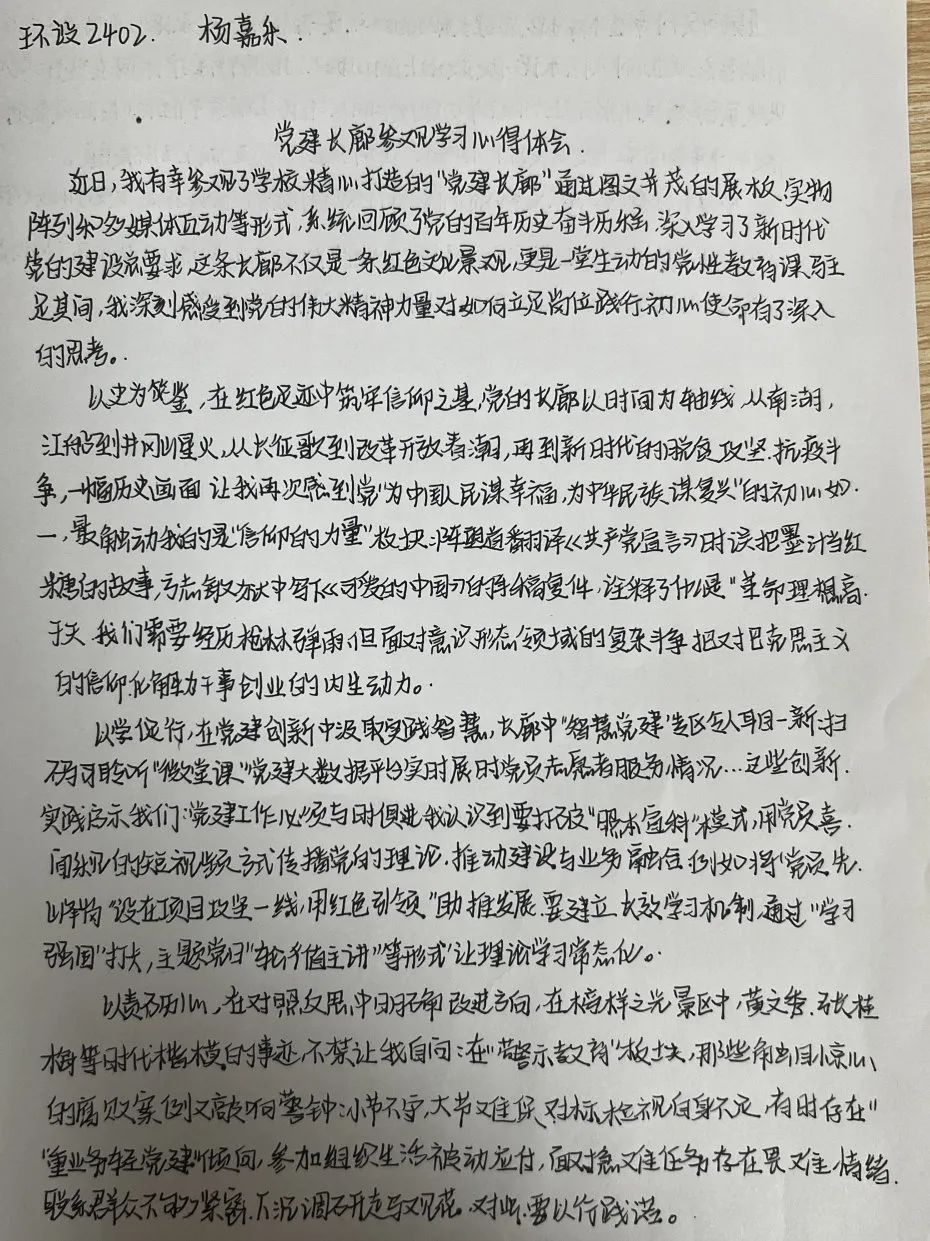 环设2402. 杨嘉乐.
党建长廊参观学习心得体会.
近日,我有幸参观了学校精心打造的"党建长廊"通过图文并茂的展板,实物
阵列和多媒体互动等形式,系统回顾了党的百年历史奋斗历程,深入学习了新时代
党的建设总要求,这条长廊不仅是一条红色文化景观,更是一堂生动的党性教育课,驻
足其间,我深刻感受到党的伟大精神力量对如何立足岗位践行初心使命有了深入
的思考。
以史为鉴,在红色足迹中筑牢信仰之基,党的长廊以时间为轴线,从南湖,
红船到井冈山星火,从长征歌到改革开放春潮,再到新时代的脱贫攻坚.抗疫斗
争,一幅历史画面 让我再次感到党"为中国人民谋幸福,为中华民族谋复兴"的初心如.
一,最触动我的是"信仰的力量"板块:陈望道翻译《共产党宣言》时误把墨汁当红
糖的故事,方志敏狱中写下《可爱的中国》的手稿复件,诠释了什么是"革命理想高.
于天 我们需要经历枪林弹雨,但面对意识形态领域的复杂斗争把对马克思主义
的信仰化解为干事创业的内生动力。
以学促行,在党建创新中汲取实践智慧,长廊中"智慧党建"专区令人耳目一新:扫
码可聆听"微党课"党建大数据平台实时展时党员志愿者服务情况...这些创新.
实践启示我们:党建工作必须与时俱进我认识到要打破"照本宣科"模式,用党员喜.
闻乐见的短视频方式传播党的理论.推动建设与业务融合 例如将"党员先.
锋岗"设在项目攻坚一线,用红色引领"助推发展.要建立长效学习机制,通过"学习
强国"打卡,主题党日"轮值主讲"等形式"让理论学习常态化。
以责砺心,在对照反思中明确改进方向,在榜样之光景区中,黄文秀.张桂
梅等时代楷模的事迹,不禁让我自问:在"警示教育"板块,那些触目惊心
的腐败案例又敲响警钟:小节不守,大节难保.对标检视自身不足,有时存在"
"重业务轻党建"倾向,参加组织生活被动应付,面对急难任务存在畏难情绪.
联系群众不够紧密.下沉调研走马观花.对此.要以行践诺。